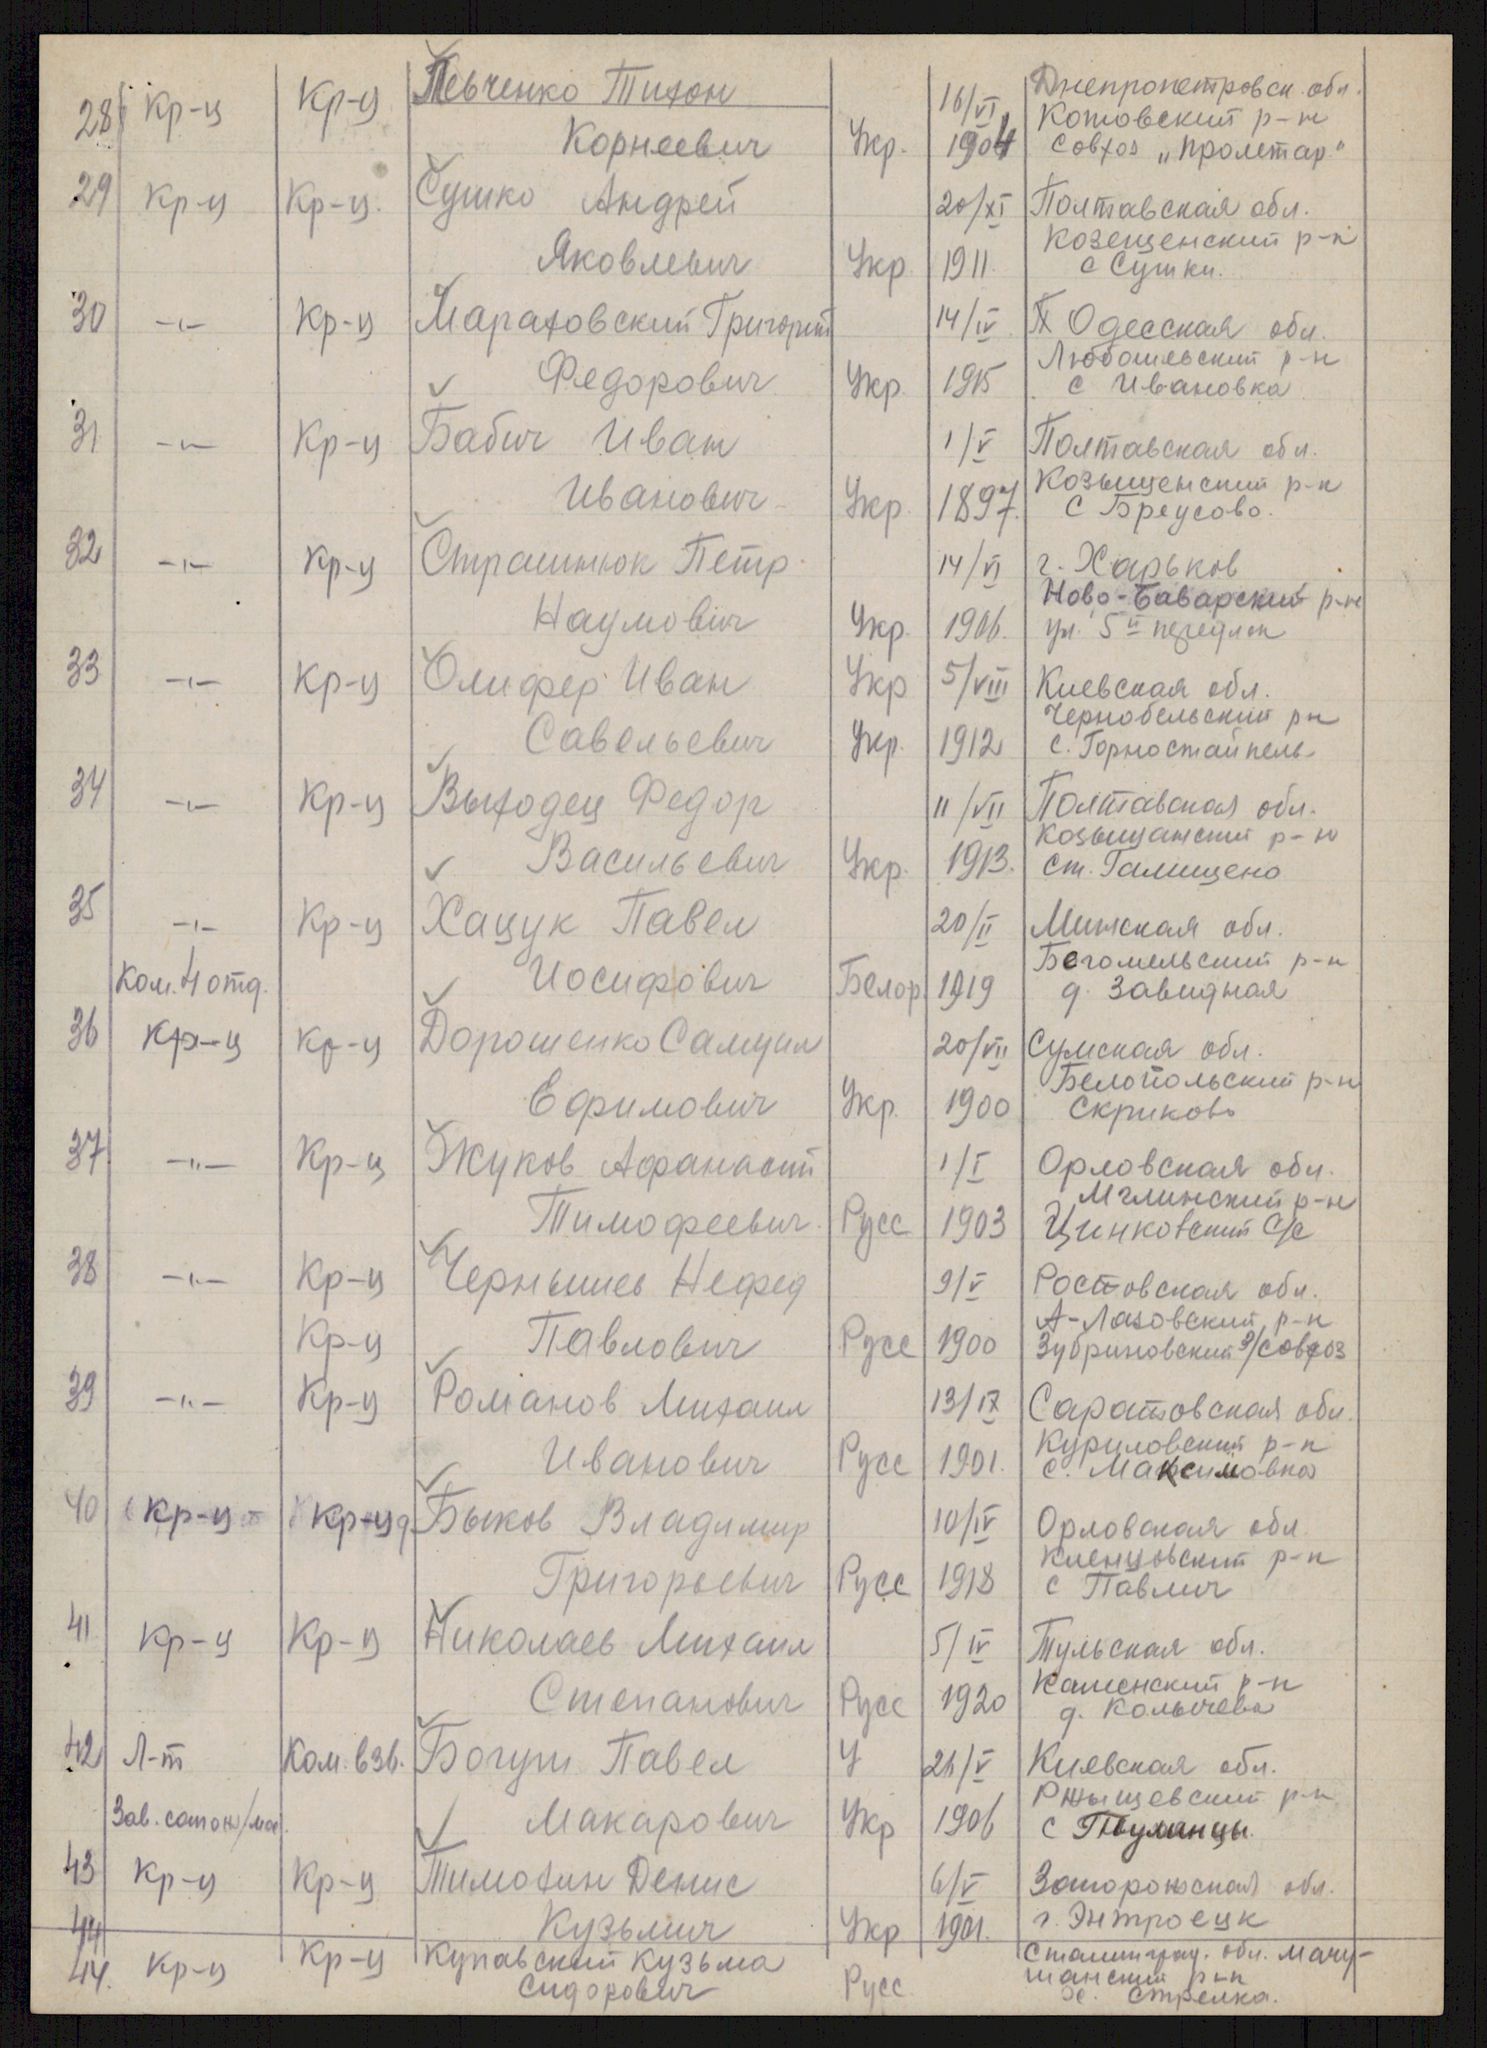 28 Кр-ц Кр-ц Певченко Тихон 16/VI Днепропетровск. обл.
Котовский р-н
Корнеевич Укр. 1904 Совхоз „Пролетар"
29 Кр-ц Кр-ц. Сушко Андрей 20/XI Полтавская обл.
Козещенский р-н
Яковлевич Укр. 1911. с Сушки.
30 -"- Кр-ц Мараховский Григорий 14/IV Одесская обл.
Любошевский р-н
Федорович Укр. 1915 с Ивановка
31 -"- Кр-ц Бабич Иван 1/V Полтавская обл.
Козыщенский р-н
Иванович Укр. 1897. с Бреусово.
32 -"- Кр-ц Страшнюк Петр 14/VI г. Харьков
Ново-Баварский р-н
Наумович Укр. 1906. ул. 5й
33 -"- Кр-ц Олифер Иван Укр 5/VIII Киевская обл.
Чернобельский рн
Савельевич Укр. 1912 с. Горностайпель
34 -"- Кр-ц Выходец Федор 11/VII Полтавская обл.
Козыщанский р-н
Васильевич Укр. 1913. ст. Галищено
35 -"- Кр-ц Хацук Павел 20/II Минская обл.
Бегомельский р-н
Ком. отд. Иосифович Белор. 1919 д. Завидная
36 Кр-ц Кр-ц Дорошенко Самуил 20/VII Сумская обл.
Белопольский р-н
Ефимович Укр. 1900 Скриково
37 -"- Кр-ц Жуков Афанасий 1/I Орловская обл.
Мглинский р-н
Тимофеевич. Русс 1903 Цинковский С/с
38 -"- Кр-ц Чернышев Нефед 9/V Ростовская обл.
А-Лазовский р-н
Кр-ц Павлович Русс 1900 Зубриновский з/совхоз
39 -"- Кр-ц Романов Михаил 13/IX Саратовская обл.
Куриловский р-н
Иванович Русс 1901. с. Максимовка
40 Кр-ц Кр-ц Быков Владимир 10/IV Орловская обл.
Кленцовский р-н
Григорьевич Русс 1918 с Павлич
41 Кр-ц Кр-ц Николаев Михаил 5/IV Тульская обл.
Каменский р-н
Степанович Русс 1920 д. Колычева
42 Л-т Ком. взв. Богуш Павел У 21/V Киевская обл.
Ржыщевский р-н
Зав. Макарович Укр 1906 с
43 Кр-ц Кр-ц Тимохин Денис 6/V Запорожская обл.
44 Кузьмич Укр 1901. г. Энтроецк
44. Кр-ц Кр-ц Купавский Кузьма Сталинград. обл. Мачу-
шанский р-н
Сидорович Русс. х. Стрелка.